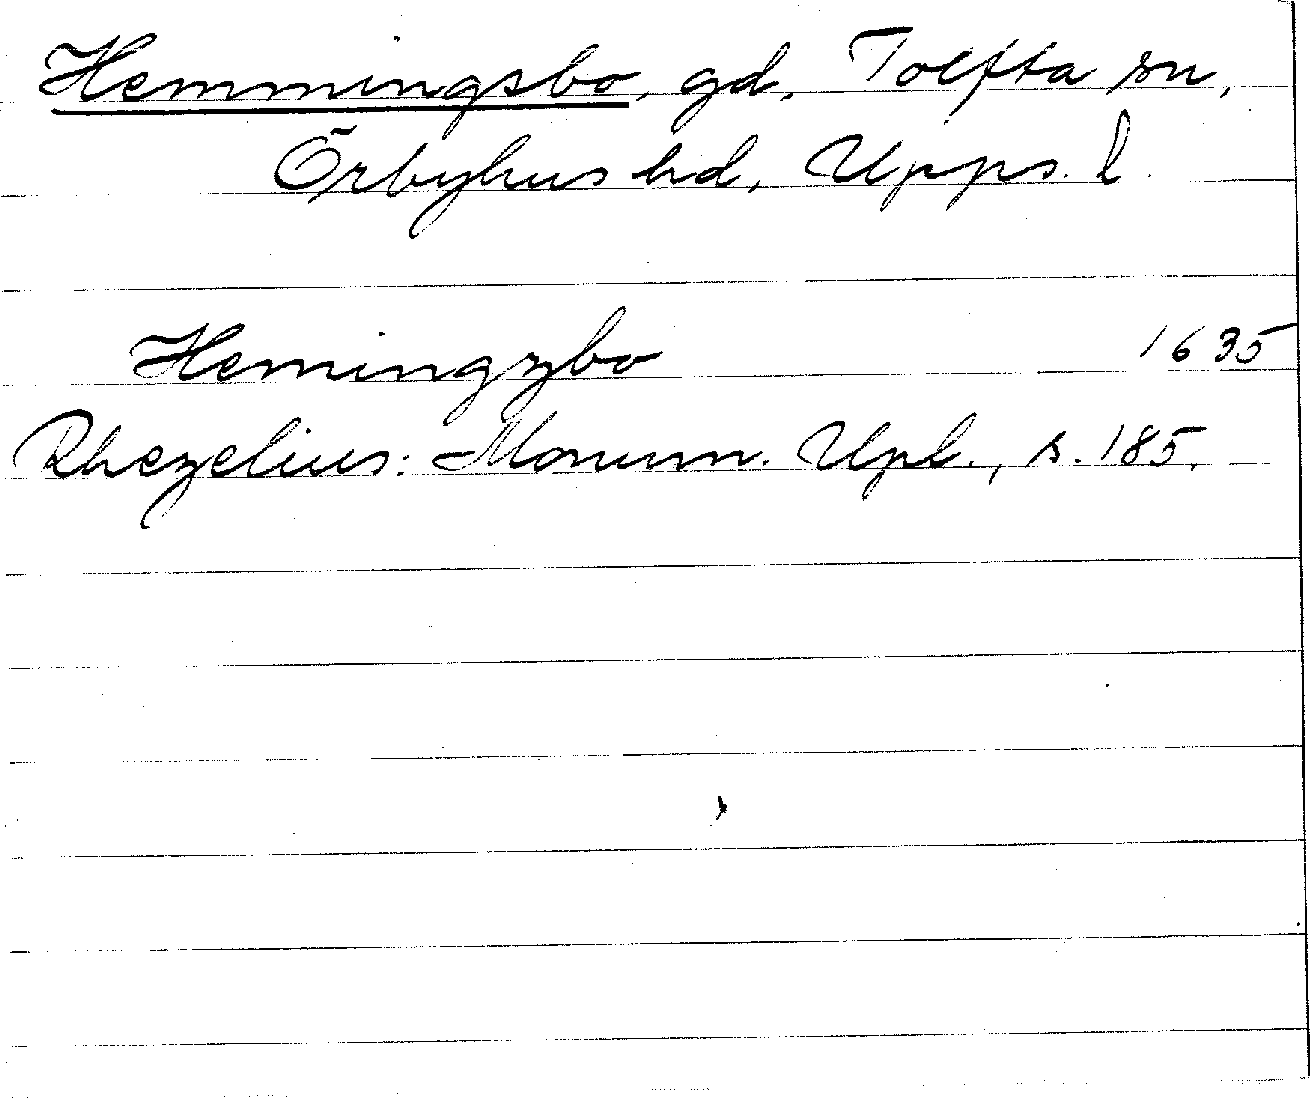 Hemmingsbo, gd, Tolfta sn,
Örbyhus hd, Upps. l.
Hemingzbo 1635
Rhezelius: Monum. Upl., s. 185.